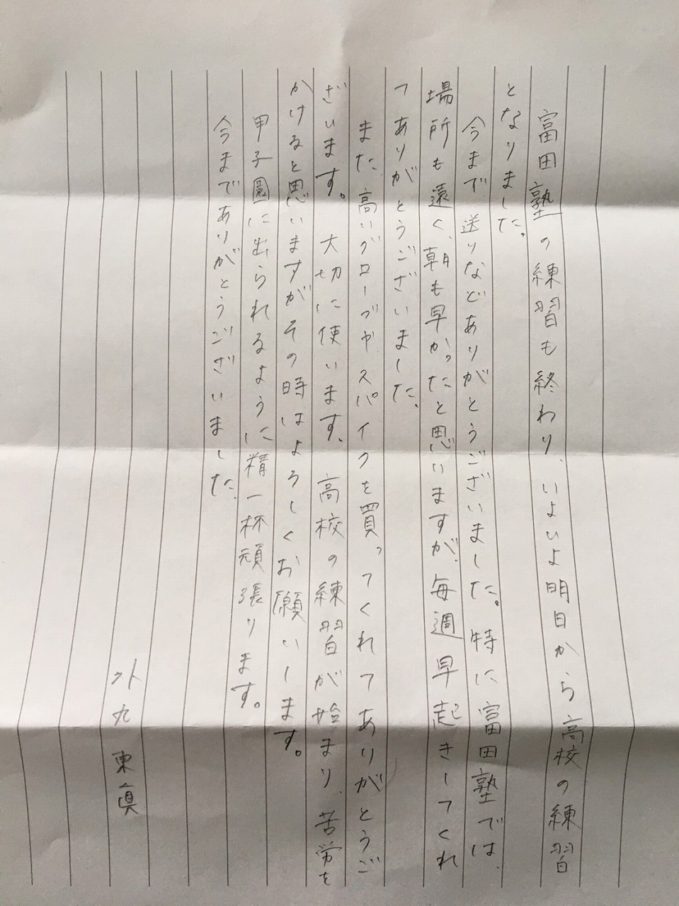 富田塾の練習も終わり、いよいよ明日から高校の練習
となりました。
今まで送りなどありがとうございました。特に富田塾では、
場所も遠く、朝も早かったと思いますが、毎週早起きしてくれ
てありがとうございました。
また、高いグローブやスパイクを買ってくれてありがとうご
ざいます。大切に使います。高校の練習が始まり、苦労を
かけると思いますがその時はよろしくお願いします。
甲子園に出られるように精一杯頑張ります。
今までありがとうございました。
外九東眞